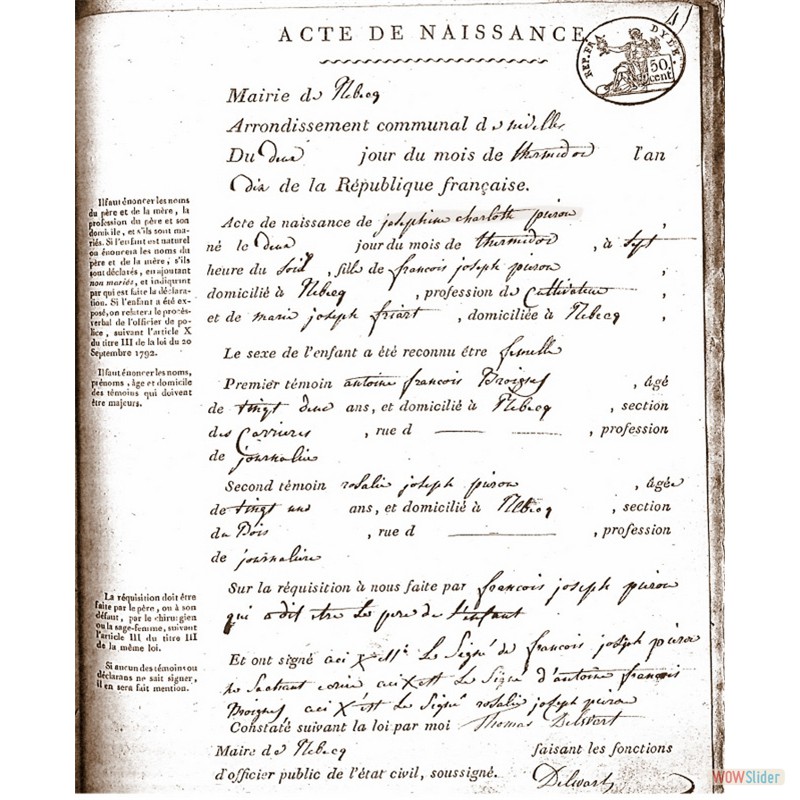 ACTE DE NAISSANCE
REP. FRA. DYDE.
50. cent
Mairie de Rebecq
Arrondissement communal de nivelles
Du deux jour du mois de thermidor l'an
dix de la République française.
Il faut énoncer les noms
du père et de la mère, la
profession du père et son
domicile, et s'ils sont ma-
riés. Si l'enfant est naturel
on énoncera les noms du
père et de la mère; s'ils
sont déclarés, en ajoutant
non mariés, et indiquant
par qui est faite la déclara-
tion. Si l'enfant a été ex-
posé, on relatera le procès-
verbal de l'officier de po-
lice, suivant l'article X
du titre III de la loi du 20
Septembre 1792.
Acte de naissance de josephine charlotte piron
né le deux jour du mois de thermidor, à sept
heure du soir, fille de francois joseph piron,
domicilié à Rebecq, profession de Cultivateur,
et de marie joseph friart, domiciliée à Rebecq,
Le sexe de l'enfant a été reconnu être femelle
Il faut énoncer les noms,
prénoms, âge et domicile
des témoins qui doivent
être majeurs.
Premier témoin antoine francois, âgé
de vingt deux ans, et domicilié à Rebecq, section
des Carrieres, rue d profession
de journalier
Second témoin rosalie joseph piron, âgée
de vingt une ans, et domicilié à Rebecq, section
du Bois, rue d profession
de journaliere
La réquisition doit être
faite par le père, ou à son
défaut, par le chirurgien
ou la sage-femme, suivant
l'article III du titre III
de la même loi.
Sur la réquisition à nous faite par francois joseph piron
qui a dit etre le pere de l'enfant
Si aucun des témoins ou
déclarans ne sait signer,
il en sera fait mention.
Et ont signé Le Signé de francois joseph piron
ne Sachant ecrire Le Signe d'antoine françois
Le Signe rosalie joseph piron
Constaté suivant la loi par moi Thomas Delwart
Maire de Rebecq faisant les fonctions
d'officier public de l'état civil, soussigné. Delwart
WOWSlider